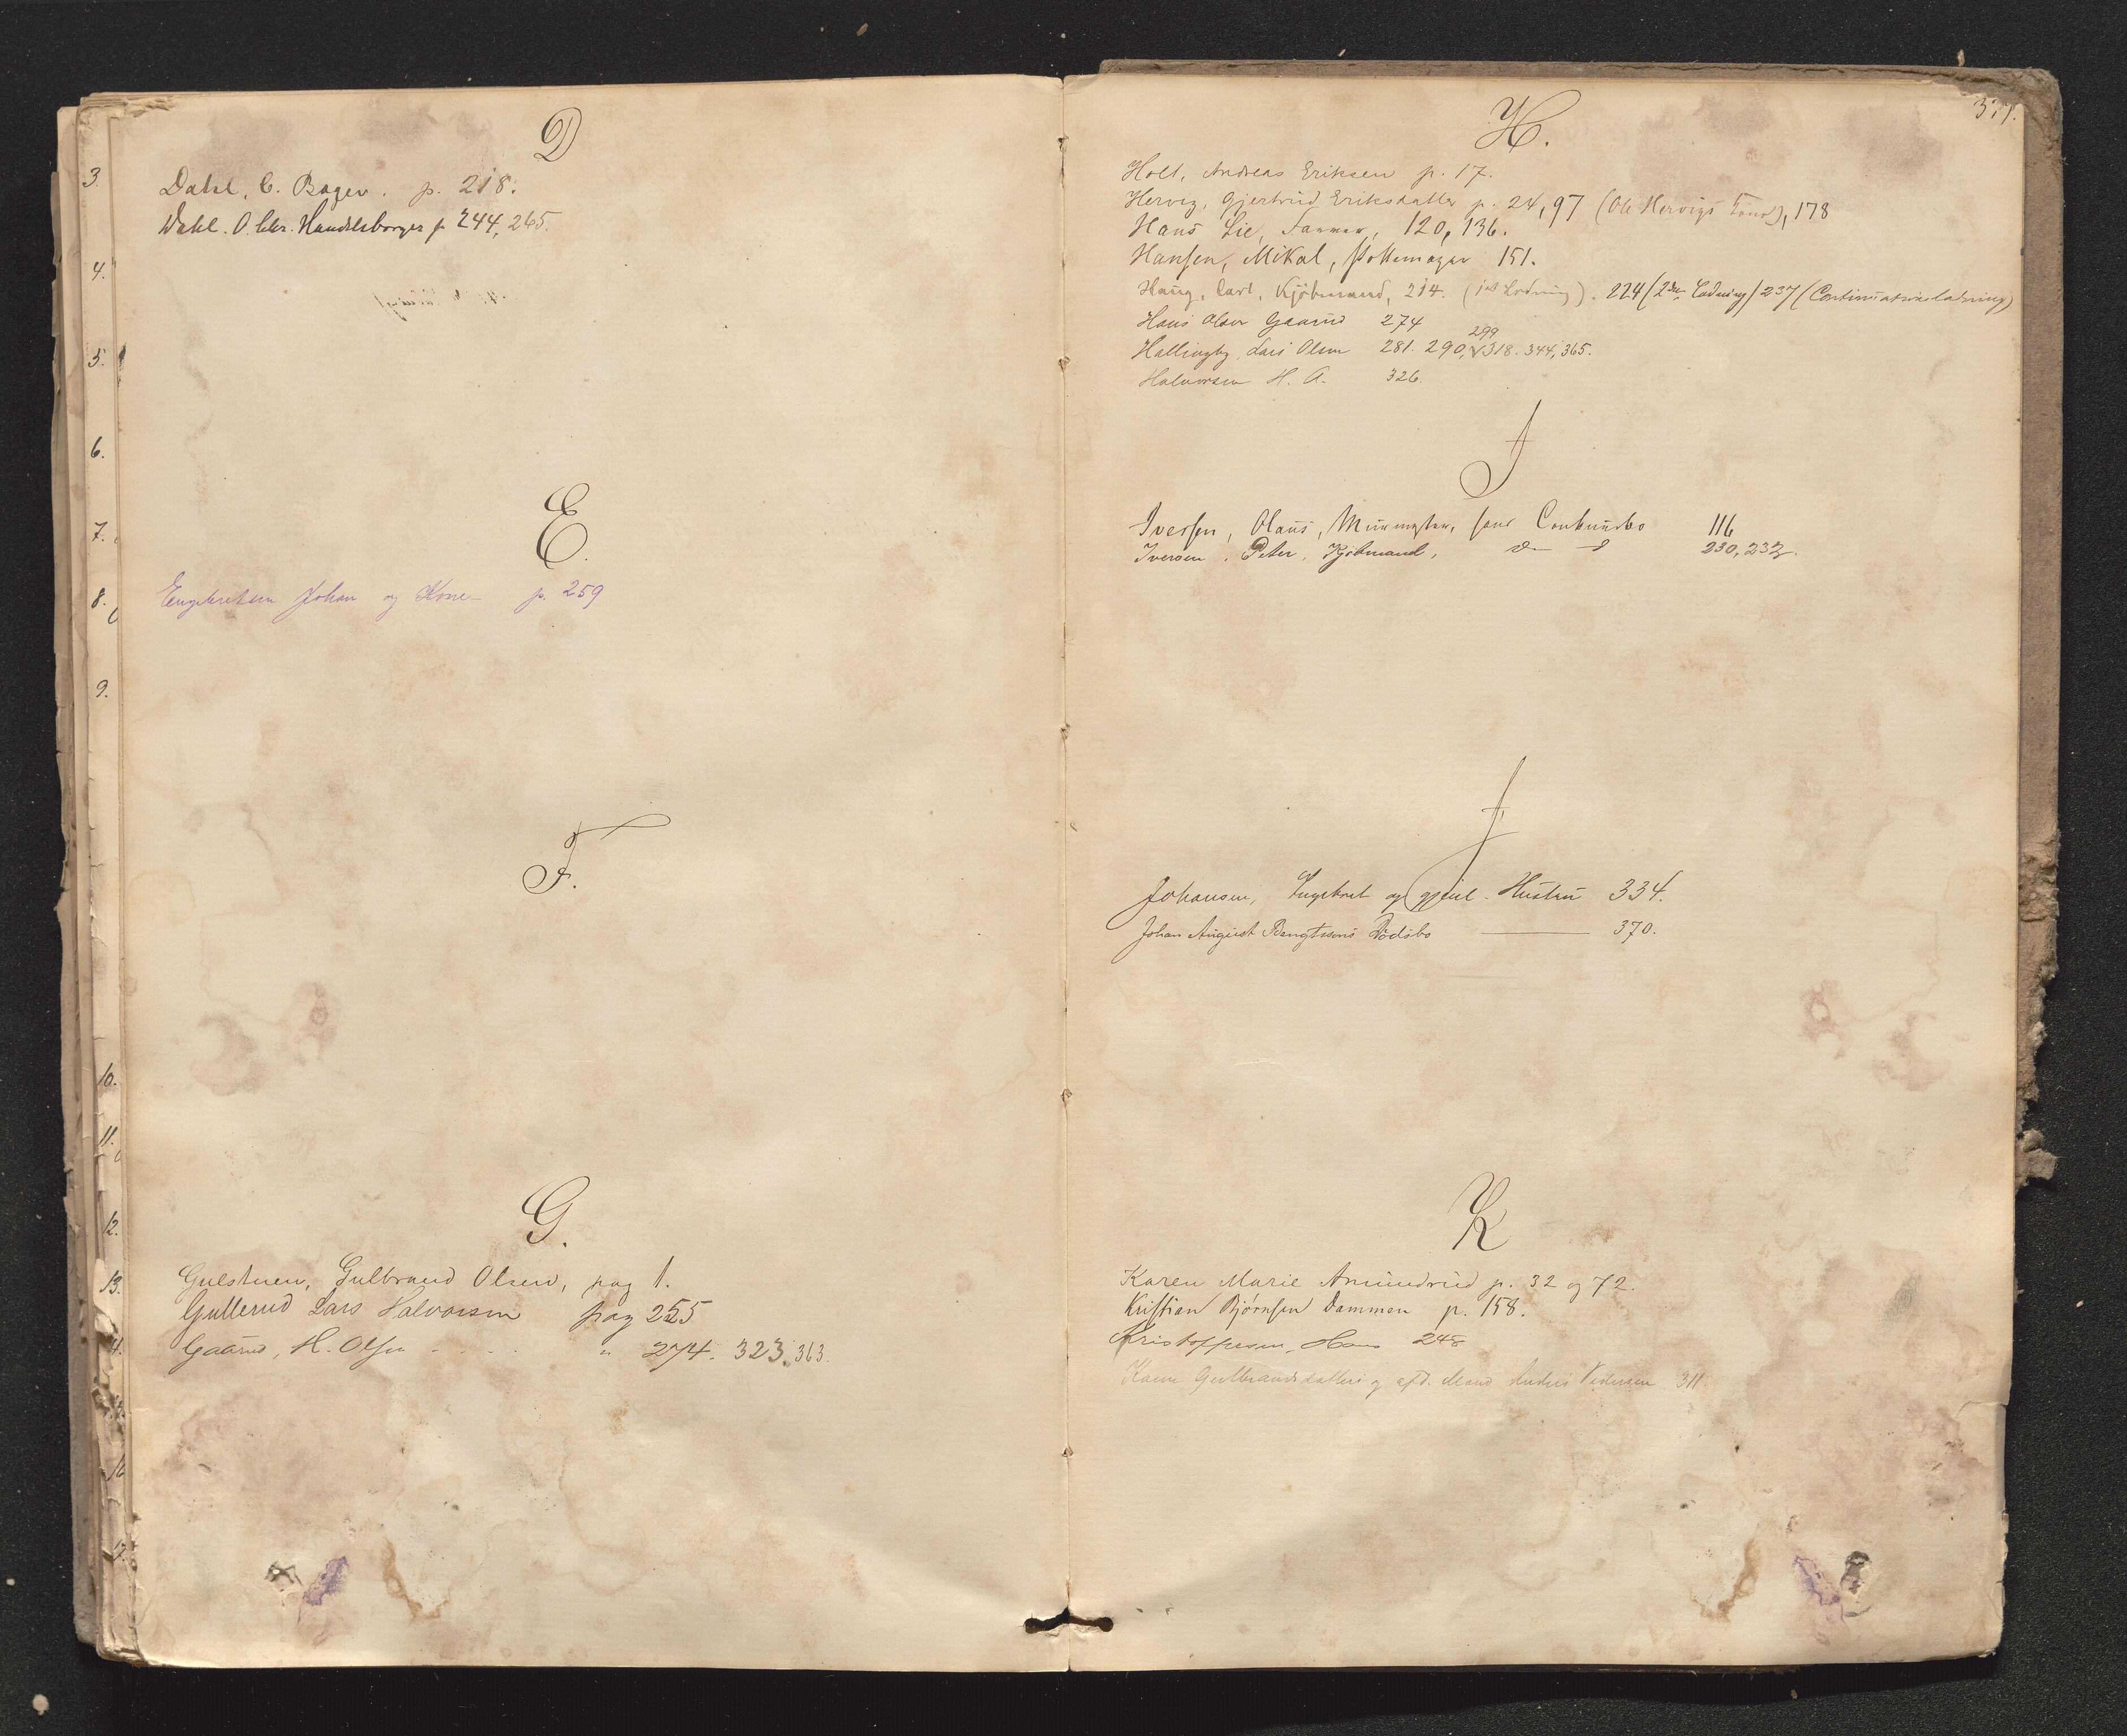 D
Dahl, C. Bager. p. 218.
Dahl. O. Chr. Handelsborger p 244, 265.
E.
Engebretsen Johan og Kone p. 259
F.
G.
Gulstuen, Gulbrand Olsen, pag 1.
Gullerud Lars Halvorsen pag 255
Gaarud, H. Olsen " 274. 323. 363.
3.
4.
5.
6.
7.
8.
9.
10.
11.
12.
13.
4.
16
17.
377.
H.
Holt, Andreas Eriksen p. 17.
Hervig, Gjertrud Eriksdatter p. 24, 97 (Ole Hervigs ), 178
Hans Lie, Farver, 120, 136.
Hansen, Mikal, Pottemager 151.
Haug, Carl, Kjøbmand, 214. (1ste Ladning). 224 (2den Ladning) 237 (Continuationsladning)
Hans Olsen Gaarud 274
299
Hallingby, Lars Olsen 281. 290, √318. 344, 365.
Halvorsen H. A. 326.
I
Iversen, Olaus, Murmester, 116
Iversen, Peter, Kjøbmand, 230, 232.
J
Johansen, Engebret og gjenl. Hustru 334.
Johan August Bengtsens Dødsbo 370.
K
Karen Marie Amundrud p. 32 og 72.
Kristian Bjørnsen Dammen p. 158.
Kristoffersen, Hans 248
Karen Gulbrandsdatters og afd. Mand Anders Pedersen 311